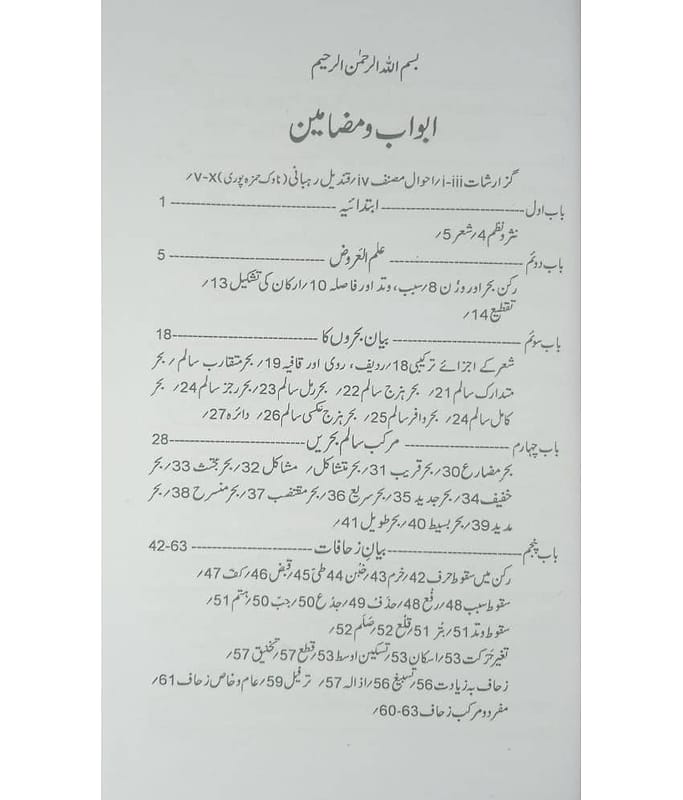 بسم اللہ الرحمٰن الرحیم
ابواب و مضامین
گزارشات i-iii/ احوال مصنف iv/ قندیل رہبانی (ناوک حمزہ پوری) v-x/
باب اول ---------------- ابتدائیہ ---------------- 1
نثر و نظم 4/ شعر 5/
باب دوئم ---------------- علم العروض ---------------- 5
رکن بحر اور وزن 8/ سبب، وتد اور فاصلہ 10/ ارکان کی تشکیل 13/
تقطیع 14/
باب سوئم ---------------- بیان بحروں کا ---------------- 18
شعر کے اجزائے ترکیبی 18/ ردیف، روی اور قافیہ 19/ بحر متقارب سالم / بحر
متدارک سالم 21/ بحر ہزج سالم 22/ بحر رمل سالم 23/ بحر رجز سالم 24/ بحر
کامل سالم 24/ بحر وافر سالم 25/ بحر ہزج عکسی سالم 26/ دائرہ 27/
باب چہارم ---------------- مرکب سالم بحریں ---------------- 28
بحر مضارع 30/ بحر قریب 31/ بحر متشاکل/ مشاکل 32/ بحر مجتث 33/ بحر
خفیف 34/ بحر جدید 35/ بحر سریع 36/ بحر مقتضب 37/ بحر منسرح 38/ بحر
مدید 39/ بحر بسیط 40/ بحر طویل 41/
باب پنجم ---------------- بیانِ زحافات ---------------- 42-63
رکن میں سقوط حرف 42/ خرم 43/ خبن 44 طی 45/ قبض 46/ کف 47/
سقوط سبب 48/ رفع 48/ حذف 49/ جدع 50/ جب 50/ ہتم 51/
سقوط وتد 51/ بتر 51/ قلع 52/ صلم 52/
تغیر حرکت 53/ اسکان 53/ تسکین اوسط 53/ قطع 57/ تخلیق 57/
زحاف بہ زیادت 56/ تسبیغ 56/ اذالہ 57/ ترفیل 59/ عام و خاص زحاف 61/
مفرد و مرکب زحاف 60-63/